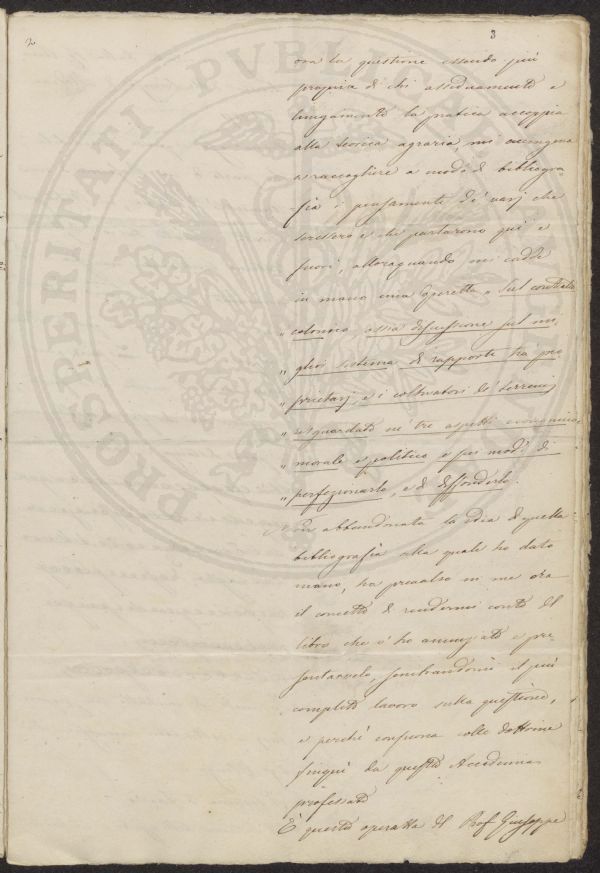 2
3
ora la questione essendo più
propria di chi assiduamente e
lungamente la pratica accoppia
alla teorica agraria, mi accingeva
a raccogliere a modo di bibliogra-
fia i pensamenti de' varj che
scrissero e che parlarono qui e
fuori, alloraquando mi cadde
in mano una operetta „ sul contratto
„ colonico ossia discussione sul mi
„ glior sistema di rapporti tra i pro
„ prietarj, e i coltivatori de' terreni
„ risguardato ne' tre aspetti economico,
„ morale e politico e per modi di
„ perfezionarlo, e di diffonderlo.
Non abbandonata la idea di quella
bibliografia alla quale ho dato
mano, ha prevalso in me ora
il concetto di rendermi conto del
libro che v'ho annunziato e pre
sentarvelo, sembrandomi il più
completo lavoro sulla questione,
e perchè consuona colle dottrine
finquì da questa Accademia
professate
È questa operetta del Prof Giuseppe
PROSPERITATI PVBLICAE